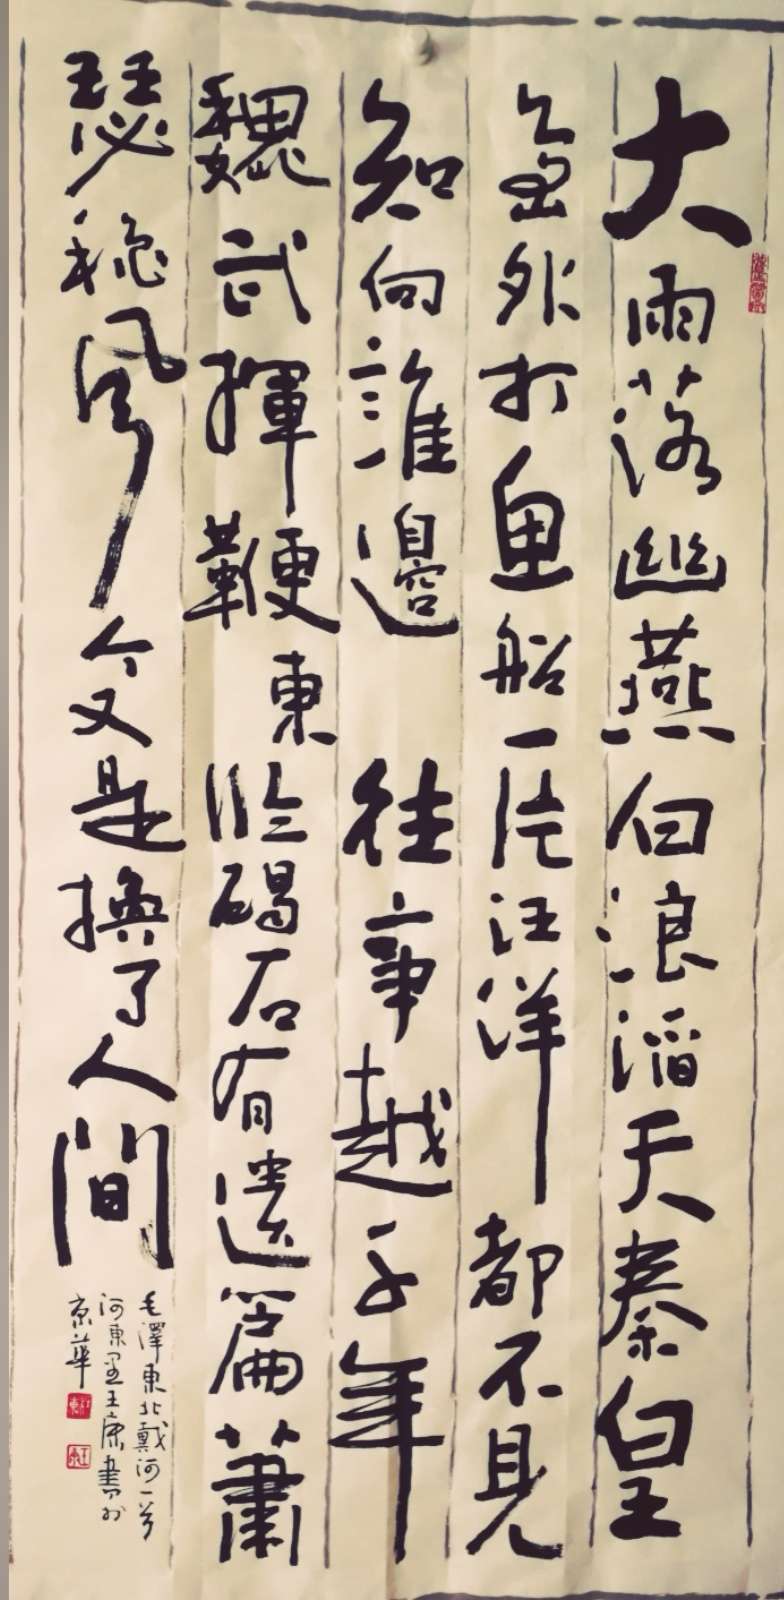 大雨落幽燕白浪滔天秦皇
島外打魚船一片汪洋都不見
知向誰邊往事越千年
魏武揮鞭東臨碣石有遺篇蕭
瑟秋風今又是換了人間
毛澤東北戴河一首
河東王康書於
京華